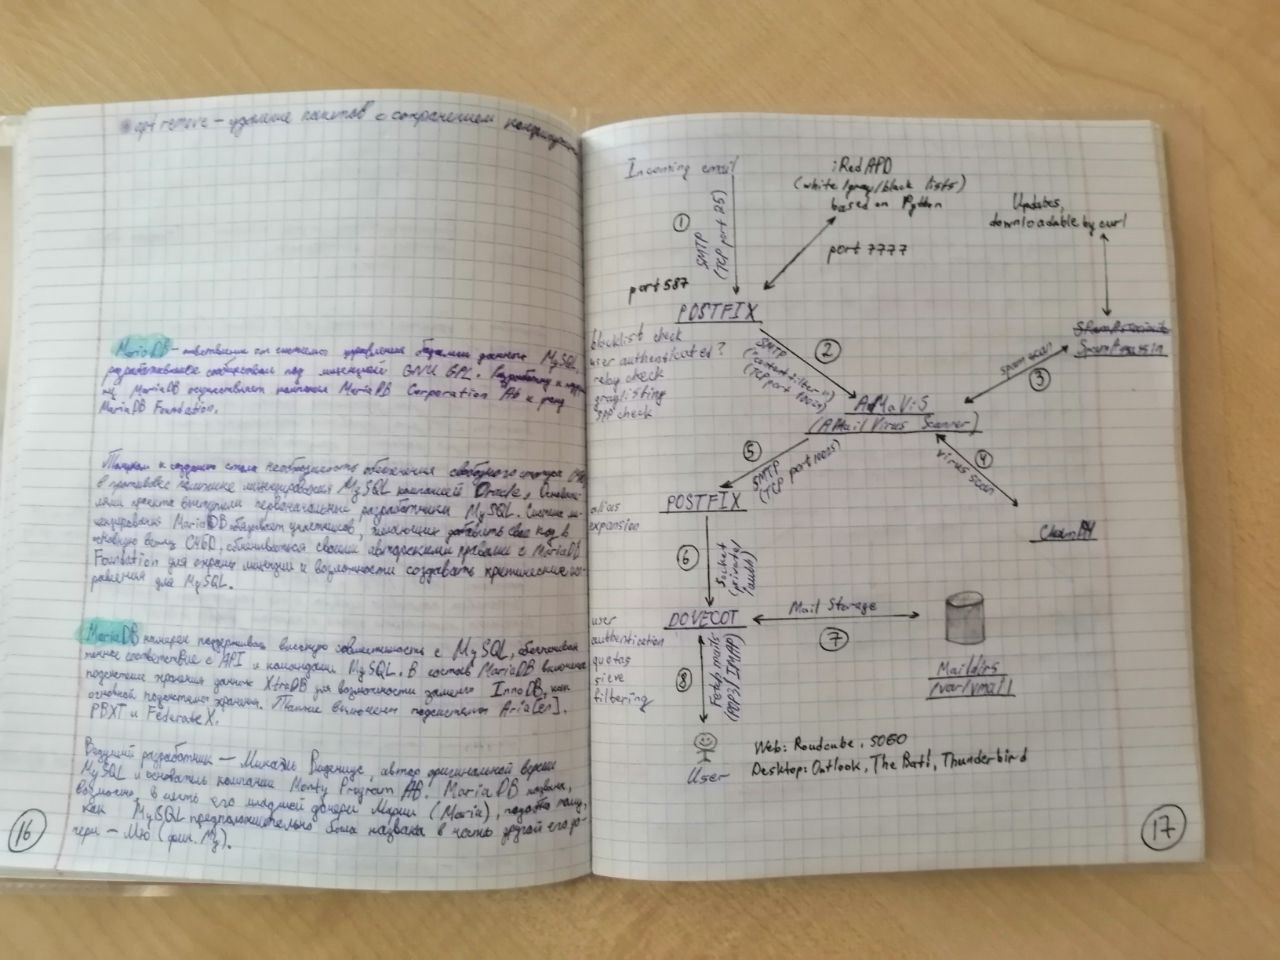 apt remove – удаление пакетов с сохранением
MariaDB – ответвление от системы управления базами данных MySQL,
разрабатываемое сообществом под лицензией GNU GPL. Разработку и
MariaDB осуществляет компания MariaDB Corporation Ab и
MariaDB Foundation.
Толчком к созданию стала необходимость обеспечения свободного статуса
в противовес политике лицензирования MySQL компанией Oracle. Основате-
лями проекта выступили первоначальные разработчики MySQL. Система ли-
цензирования MariaDB обязывает участников, желающих добавить свой код в
основную ветку СУБД, обмениваться своими авторскими правами с MariaDB
Foundation для охраны лицензии и возможности создавать критические исп-
равления для MySQL.
MariaDB намерен поддерживать высокую совместимость с MySQL, обеспечивая
точное соответствие с API и командами MySQL. В состав MariaDB включена
подсистема хранения данных XtraDB для возможности замены InnoDB, как
основной подсистемы хранения. Также включены подсистемы Aria[en],
PBXT и FederateX.
Ведущий разработчик – Микаэль Видениус, автор оригинальной версии
MySQL и основатель компании Monty Program AB. MariaDB названа,
возможно, в честь его младшей дочери Марии (Maria), подобно тому,
как MySQL предположительно была названа в честь другой его до-
чери – Мю (фин. My).
16
Incoming email
iRedAPD
(white/gray/black lists)
based on Python
Updates,
downloadable by curl
1
SMTP
(TCP port 25)
port 7777
port 587
POSTFIX
blocklist check
user authenticated?
relay check
graylisting
SPF check
2
SMTP
(content filtering)
(TCP port 10024)
SpamAssassin
spam scan
3
AMaViS
(A Mail Virus Scanner)
5
SMTP
(TCP port 10025)
4
virus scan
POSTFIX
alias
expansion
ClamAV
6
Socket
(private/
auth)
DOVECOT
Mail Storage
7
user
authentication
quotas
sieve
filtering
8
Fetch mails
(POP3/IMAP)
Maildirs
/var/vmail
User
Web: Roudcube, SOGO
Desktop: Outlook, The Bat!, Thunderbird
17